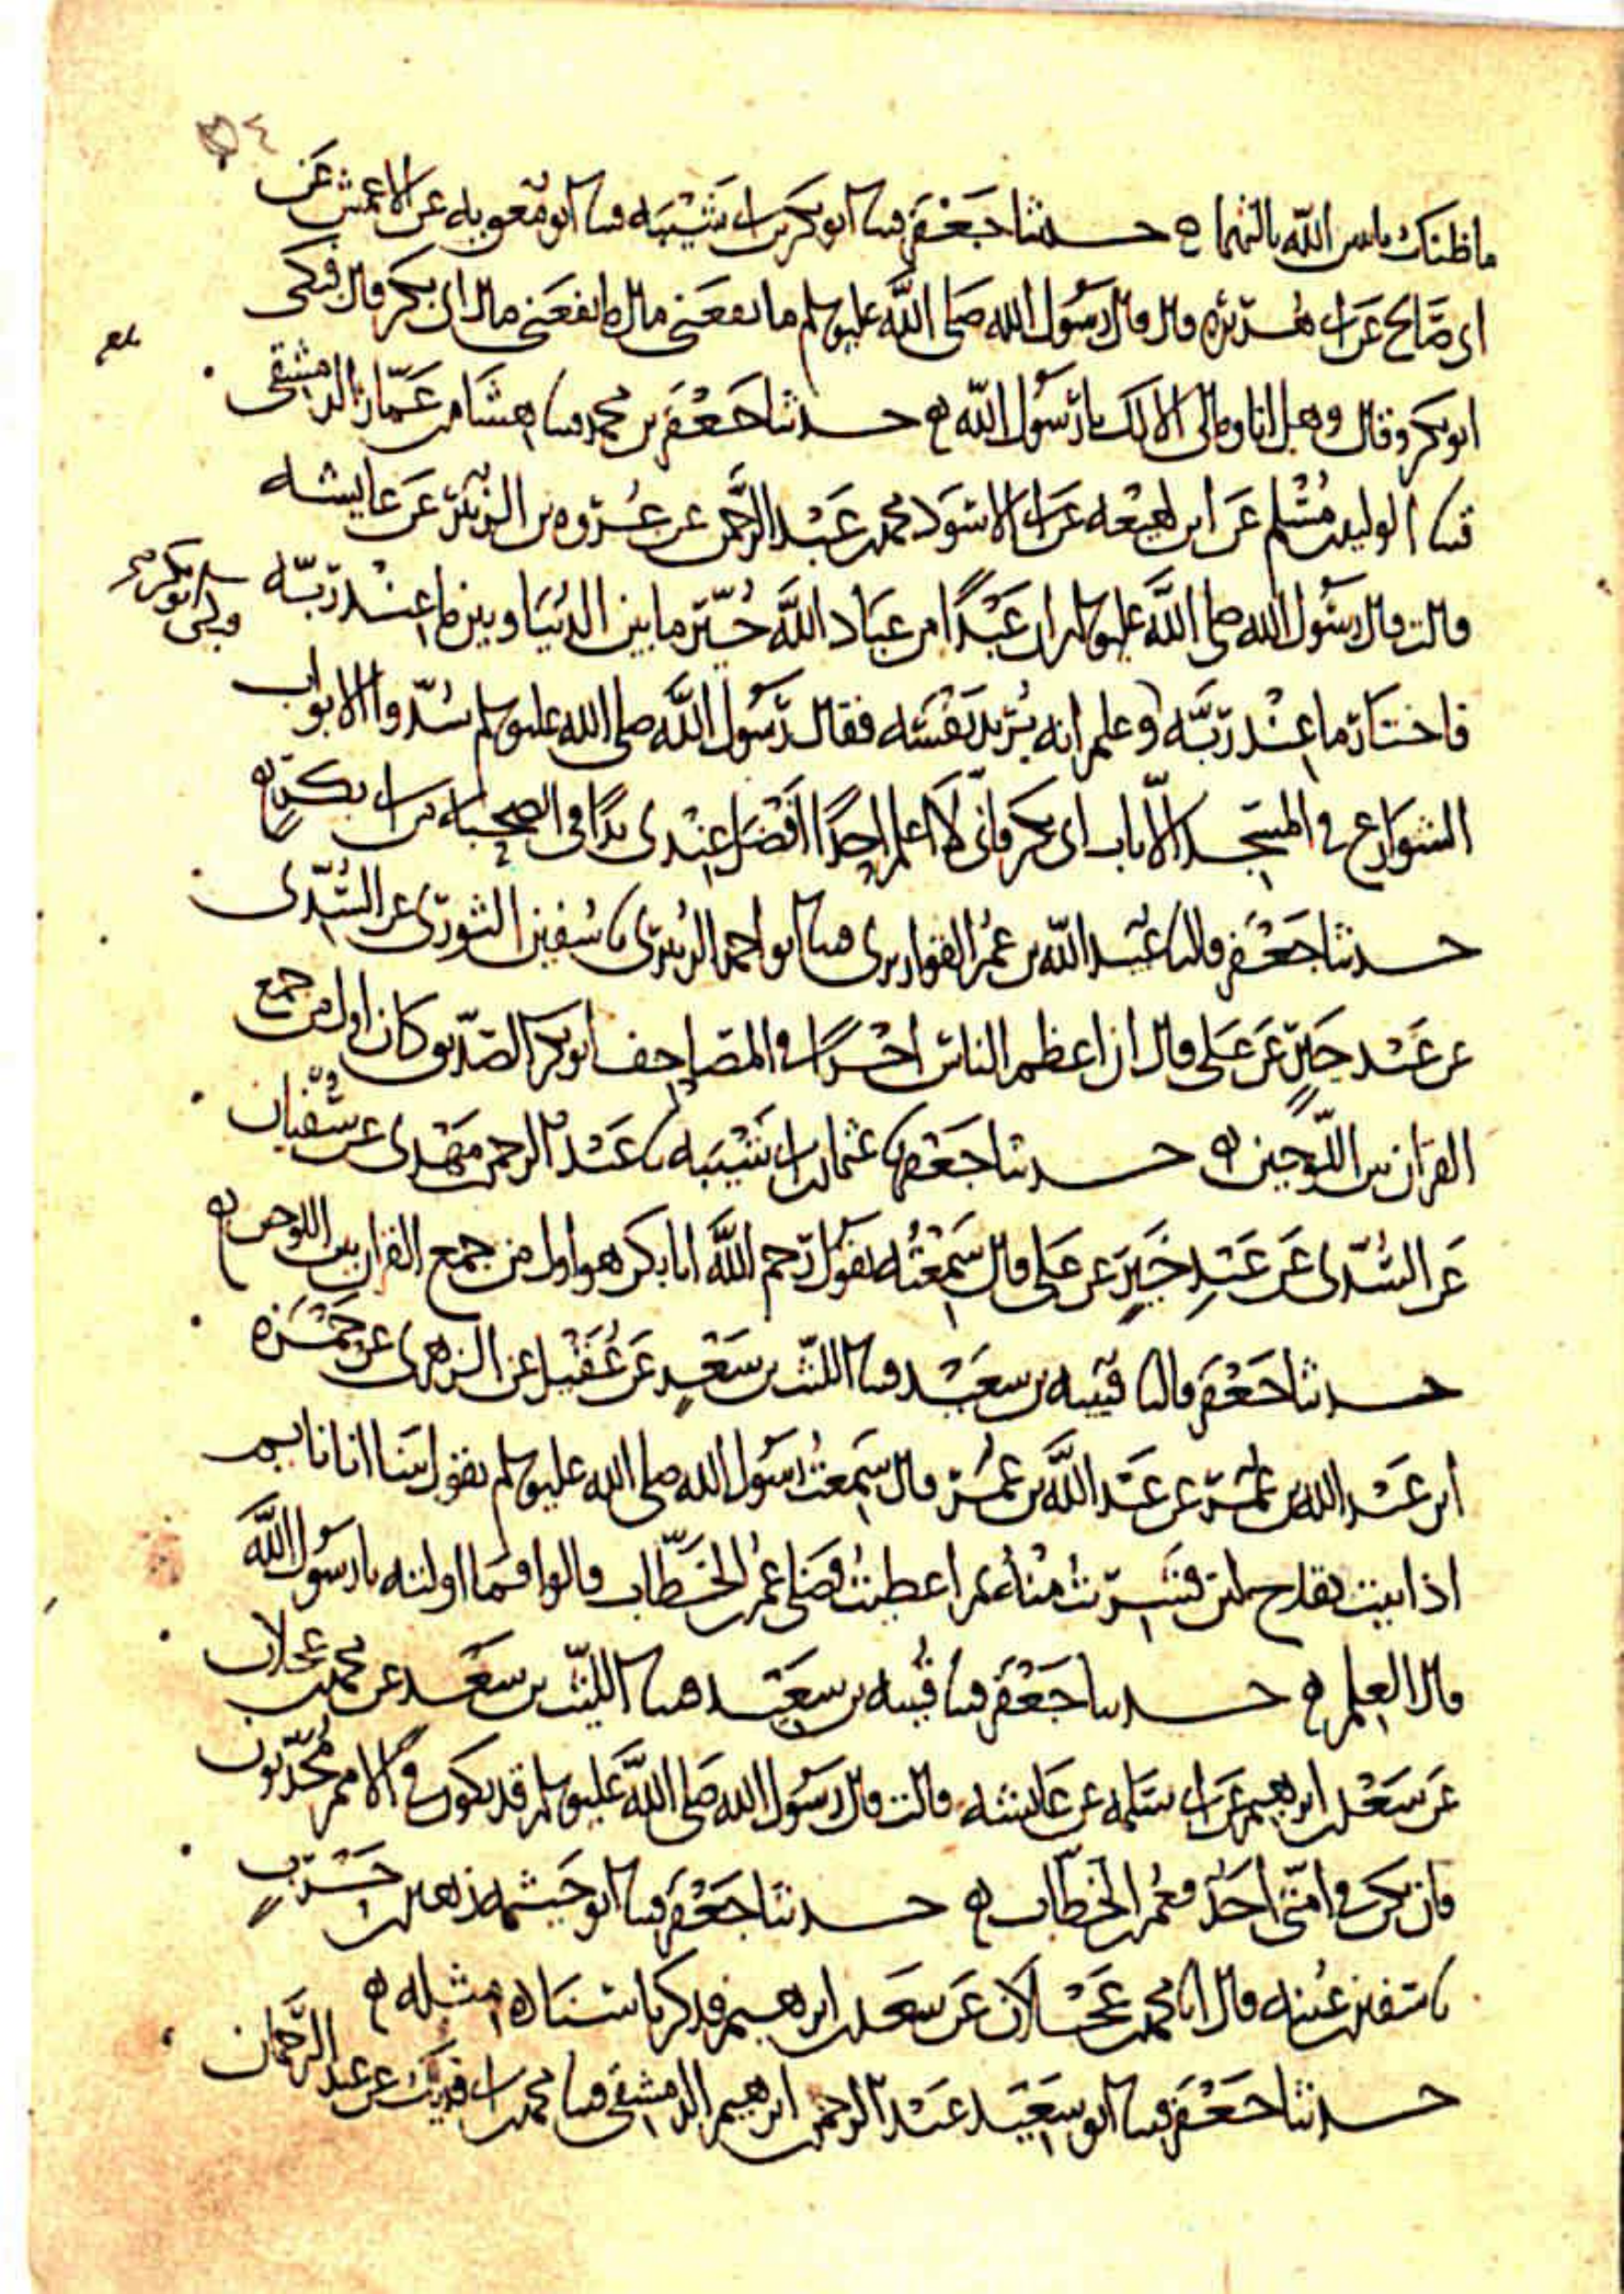 ٥٤
ماظنك باثنين الله ثالثهما ه حدثنا جعفر قثنا ابو بكر بن ابي شيبه قثنا ابو معويه عن الاعمش عن
ابي صالح عن ابي هريره قال قال رسول الله صلى الله عليه وسلم ما نفعني مال ما نفعني مال ابي بكر قال فبكى
ابو بكر وقال وهل انا ومالى الا لك يا رسول الله ه حدثنا جعفر بن محمد قثنا هشام بن عمار الدمشقى
قثنا الوليد بن مسلم عن ابن لهيعه عن ابي الاسود محمد بن عبد الرحمن عن عروه بن الزبير عن عايشه
قالت قال رسول الله صلى الله عليه وسلم ان عبدًا من عباد الله خُيّر ما بين الدنيا وبين ما عند ربّه
فاختار ما عند ربّه وعلم انه يريد نفسه فقال رسول الله صلى الله عليه وسلم سُدّوا الابواب
الشوارع في المسجد الّا باب ابى بكر فانّي لا اعلم احدًا افضل عندى يدًا فى الصحبه من ابى بكر ه
حدثنا جعفر قال ثنا عبيد الله بن عمر القواريرى قثنا ابو احمد الزبيرى ثنا سفين الثورى عن السُّدّى
عن عبد خير عن على قال ان اعظم الناس اجرًا في المصاحف ابو بكر الصدّيق كان اول من جمع
القران بين اللّوحين ه حدثنا جعفر ثنا عثمان بن ابى شيبه ثنا عبد الرحمن بن مهدى عن سفيان
عن السُّدّى عن عبد خير عن على قال سمعته يقول رحم الله ابا بكر هو اول من جمع القران بين اللوحين ه
حدثنا جعفر قال ثنا قتيبه بن سعيد قثنا الليث بن سعد عن عقيل عن الزهرى عن حمزه
ابن عبد الله بن عمر عن عبد الله بن عمر قال سمعت رسول الله صلى الله عليه وسلم يقول بينا انا نايم
اذ اتيت بقدح لبن فشربت منه ثم اعطيت فضلى عمر بن الخطّاب قالوا فما اولته يا رسول الله
قال العلم ه حدثنا جعفر قثنا قتيبه بن سعيد قثنا الليث بن سعد عن محمد بن عجلان
عن سعد بن ابرهيم عن ابى سلمه عن عايشه قالت قال رسول الله صلى الله عليه وسلم قد يكون في الامم محدّثون
فان يكن في امتى احد فعمر بن الخطّاب ه حدثنا جعفر قثنا ابو خيثمه زهير بن حرب
ثنا سفين بن عيينه قال انا محمد بن عجلان عن سعد بن ابرهيم فذكر باسناده مثله ه
حدثنا جعفر قثنا ابو سعيد عبد الرحمن بن ابرهيم الدمشقى قثنا محمد بن ابى فديك عن عبد الرحمان